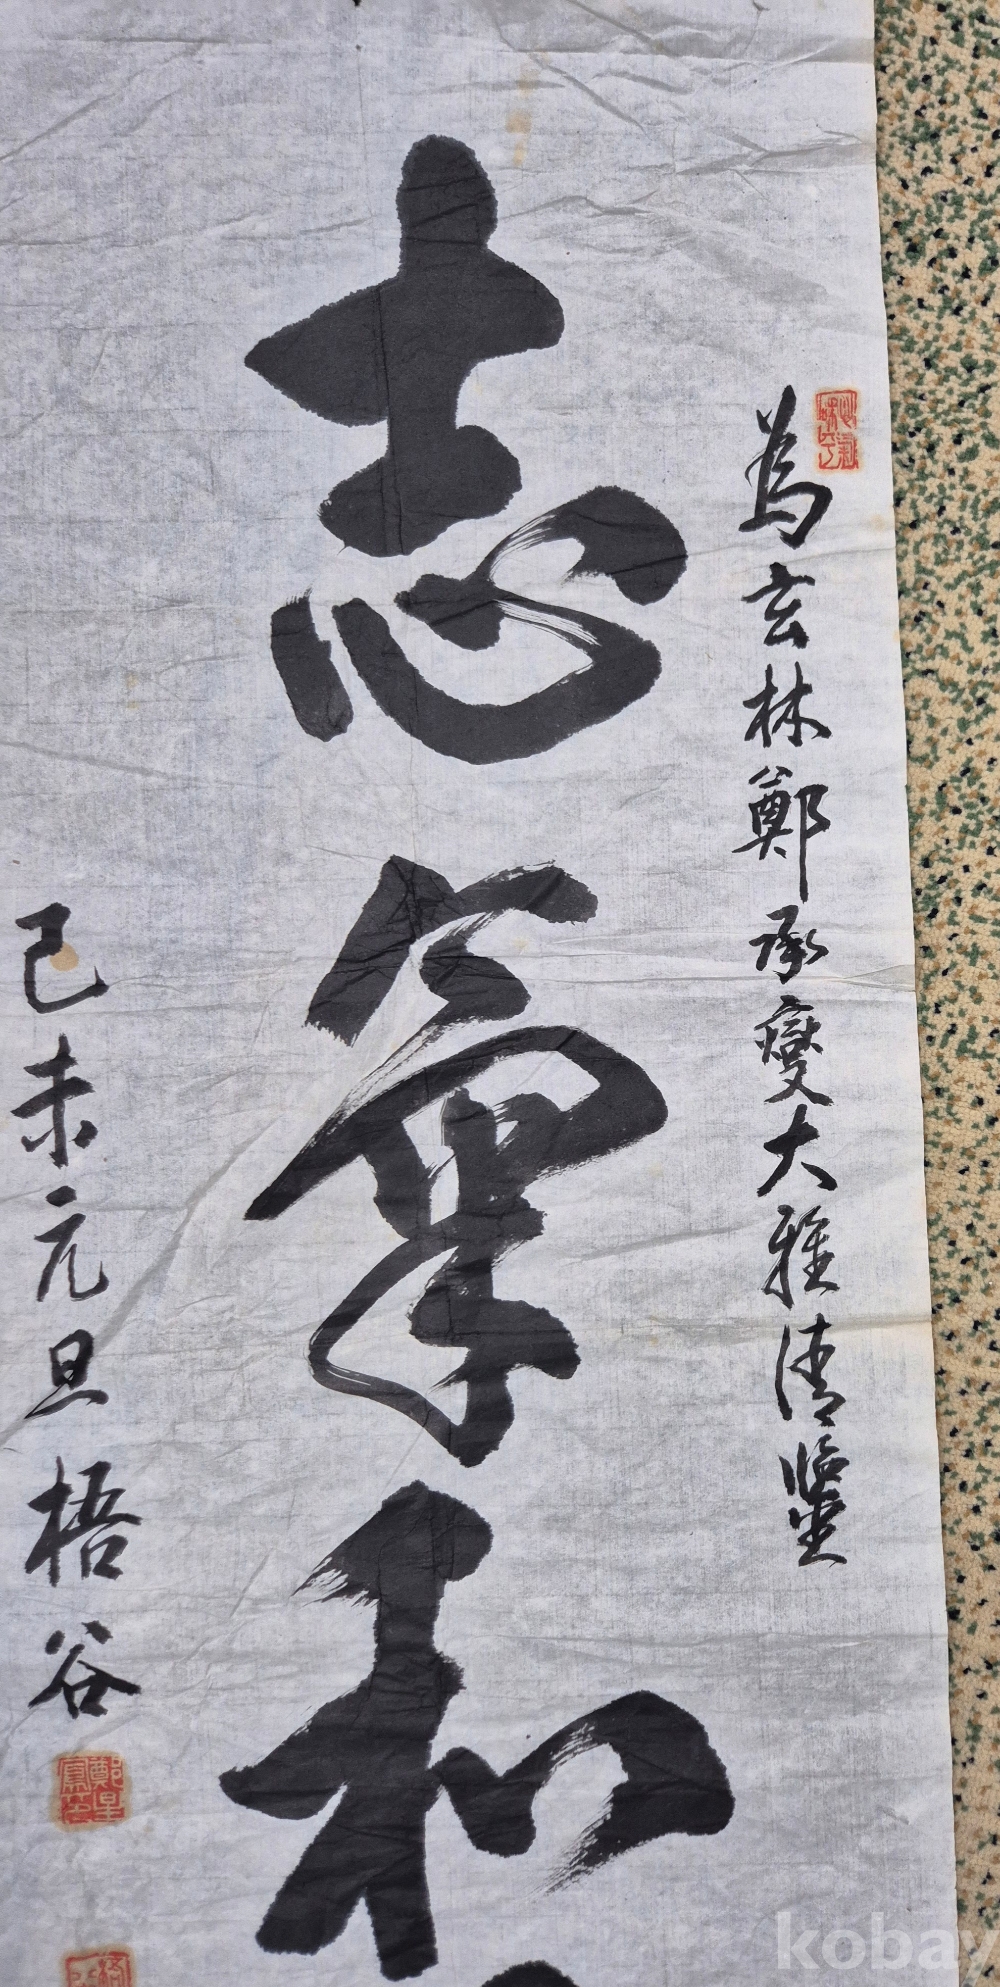 為玄林鄭承燮大雅清鑒
志氣和
己未元旦梧谷
kobay